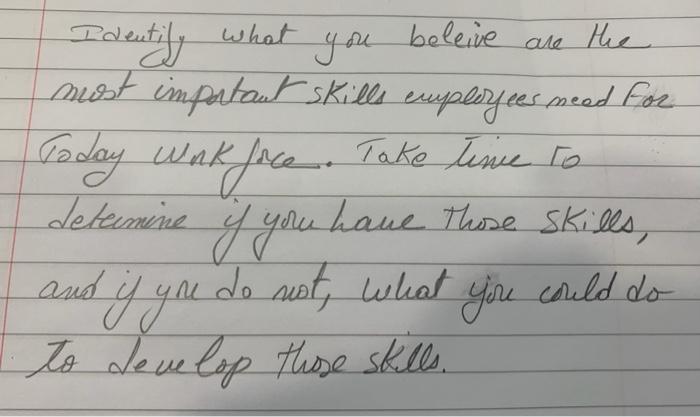 Identify what you beleive are the
most important skills employees need For
Today Work force. Take Time To
determine if you have those skills,
and if you do not, what you could do
To develop those skills.